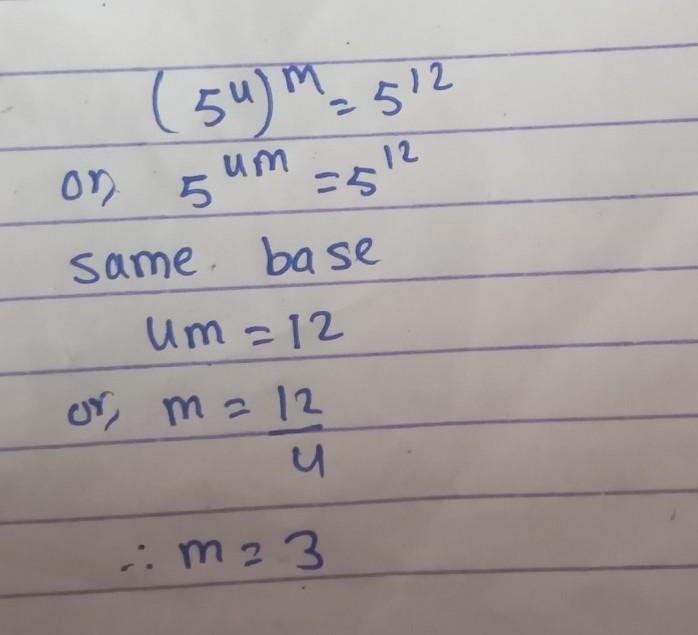 (5⁴)ᵐ = 5¹²
or, 5⁴ᵐ = 5¹²
same base
4m = 12
or, m = 12/4
∴ m = 3